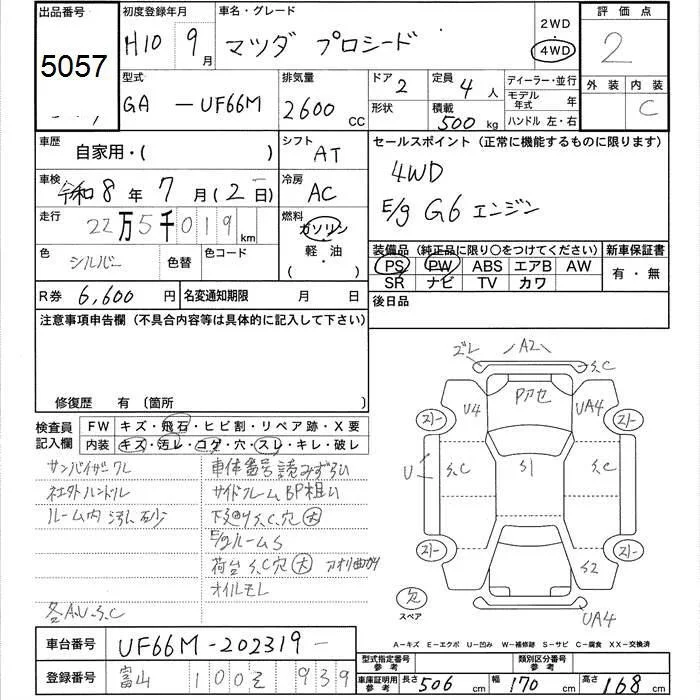 出品番号 初度登録年月 車名・グレード 評価点
5057 H10 9月 マツダ プロシード 2WD 4WD 2
型式 排気量 ドア 2 定員 4人 ディーラー・並行 外装 内装
GA-UF66M 2600 CC 形状 積載 500 kg モデル年式 年 C
ハンドル 左・右
車歴 自家用・( ) シフト AT セールスポイント (正常に機能するものに限ります)
車検 令和8年7月(2日) 冷房 AC 4WD
走行 22万5千019km 燃料 ガソリン・軽油・( ) E/g G6 エンジン
色 シルバー 色替 色コード
装備品 (純正品に限り〇をつけてください) 新車保証書
PS PW ABS エアB AW 有・無
SR ナビ TV カワ
R券 6,600円 名変通知期限 月 日 後日品
注意事項申告欄 (不具合内容等は具体的に記入して下さい)
修復歴 有 (箇所
検査員記入欄 FW キズ・飛石・ヒビ割・リペア跡・X要
内装 キズ・汚レ・コゲ・穴・スレ・キレ・破レ
サンバイザーワレ 車体番号読みずらい
社外ハンドル サイドフレームBP粗い
ルーム内 汚レ 下廻りS.C.穴(大)
E/gルームS
荷台 S.C穴(大) アオリ曲ガリ
オイルモレ
各A.U.S.C
ズレ A2 S.C
U4 Pアセ UA4
スリー スリー
U S.C S1 S.C
スリー スリー
S2
欠 スペア UA4
A-キズ E-エクボ U-凹み W-補修跡 S-サビ C-腐食 XX-交換済
車台番号 UF66M-202319-
登録番号 富山 100 そ 939
型式指定番号 参考 類別区分番号 参考
車庫証明用 参考 長さ 506 cm 幅 170 cm 高さ 168 cm